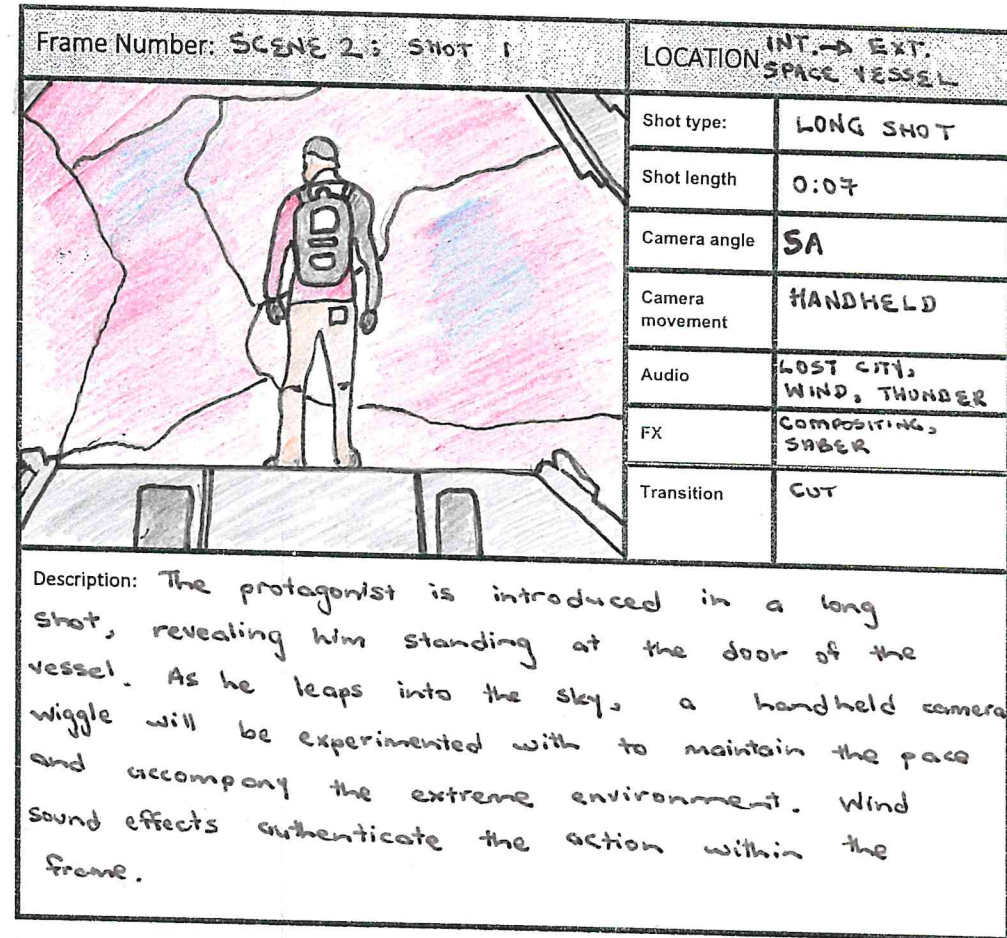 Frame Number: SCENE 2: SHOT 1
LOCATION INT. → EXT.
SPACE VESSEL
Shot type: LONG SHOT
Shot length 0:07
Camera angle SA
Camera
movement
HANDHELD
Audio
LOST CITY,
WIND, THUNDER
FX
COMPOSITING,
SABER
Transition CUT
Description: The protagonist is introduced in a long
shot, revealing him standing at the door of the
vessel. As he leaps into the sky, a handheld camera
wiggle will be experimented with to maintain the pace
and accompany the extreme environment. Wind
sound effects authenticate the action within the
frame.